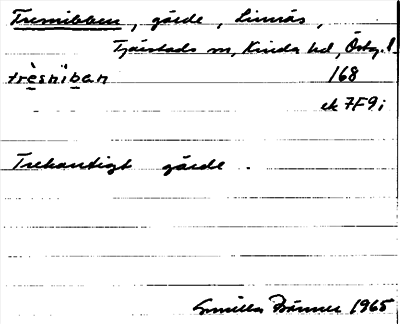 Tresnibben, gärde, Linnäs,
Tjärstads sn, Kinda hd, Östg. l.
trèsnìban 168
ek 7F9i
Trekantigt gärde.
Gunilla Brännes 1965